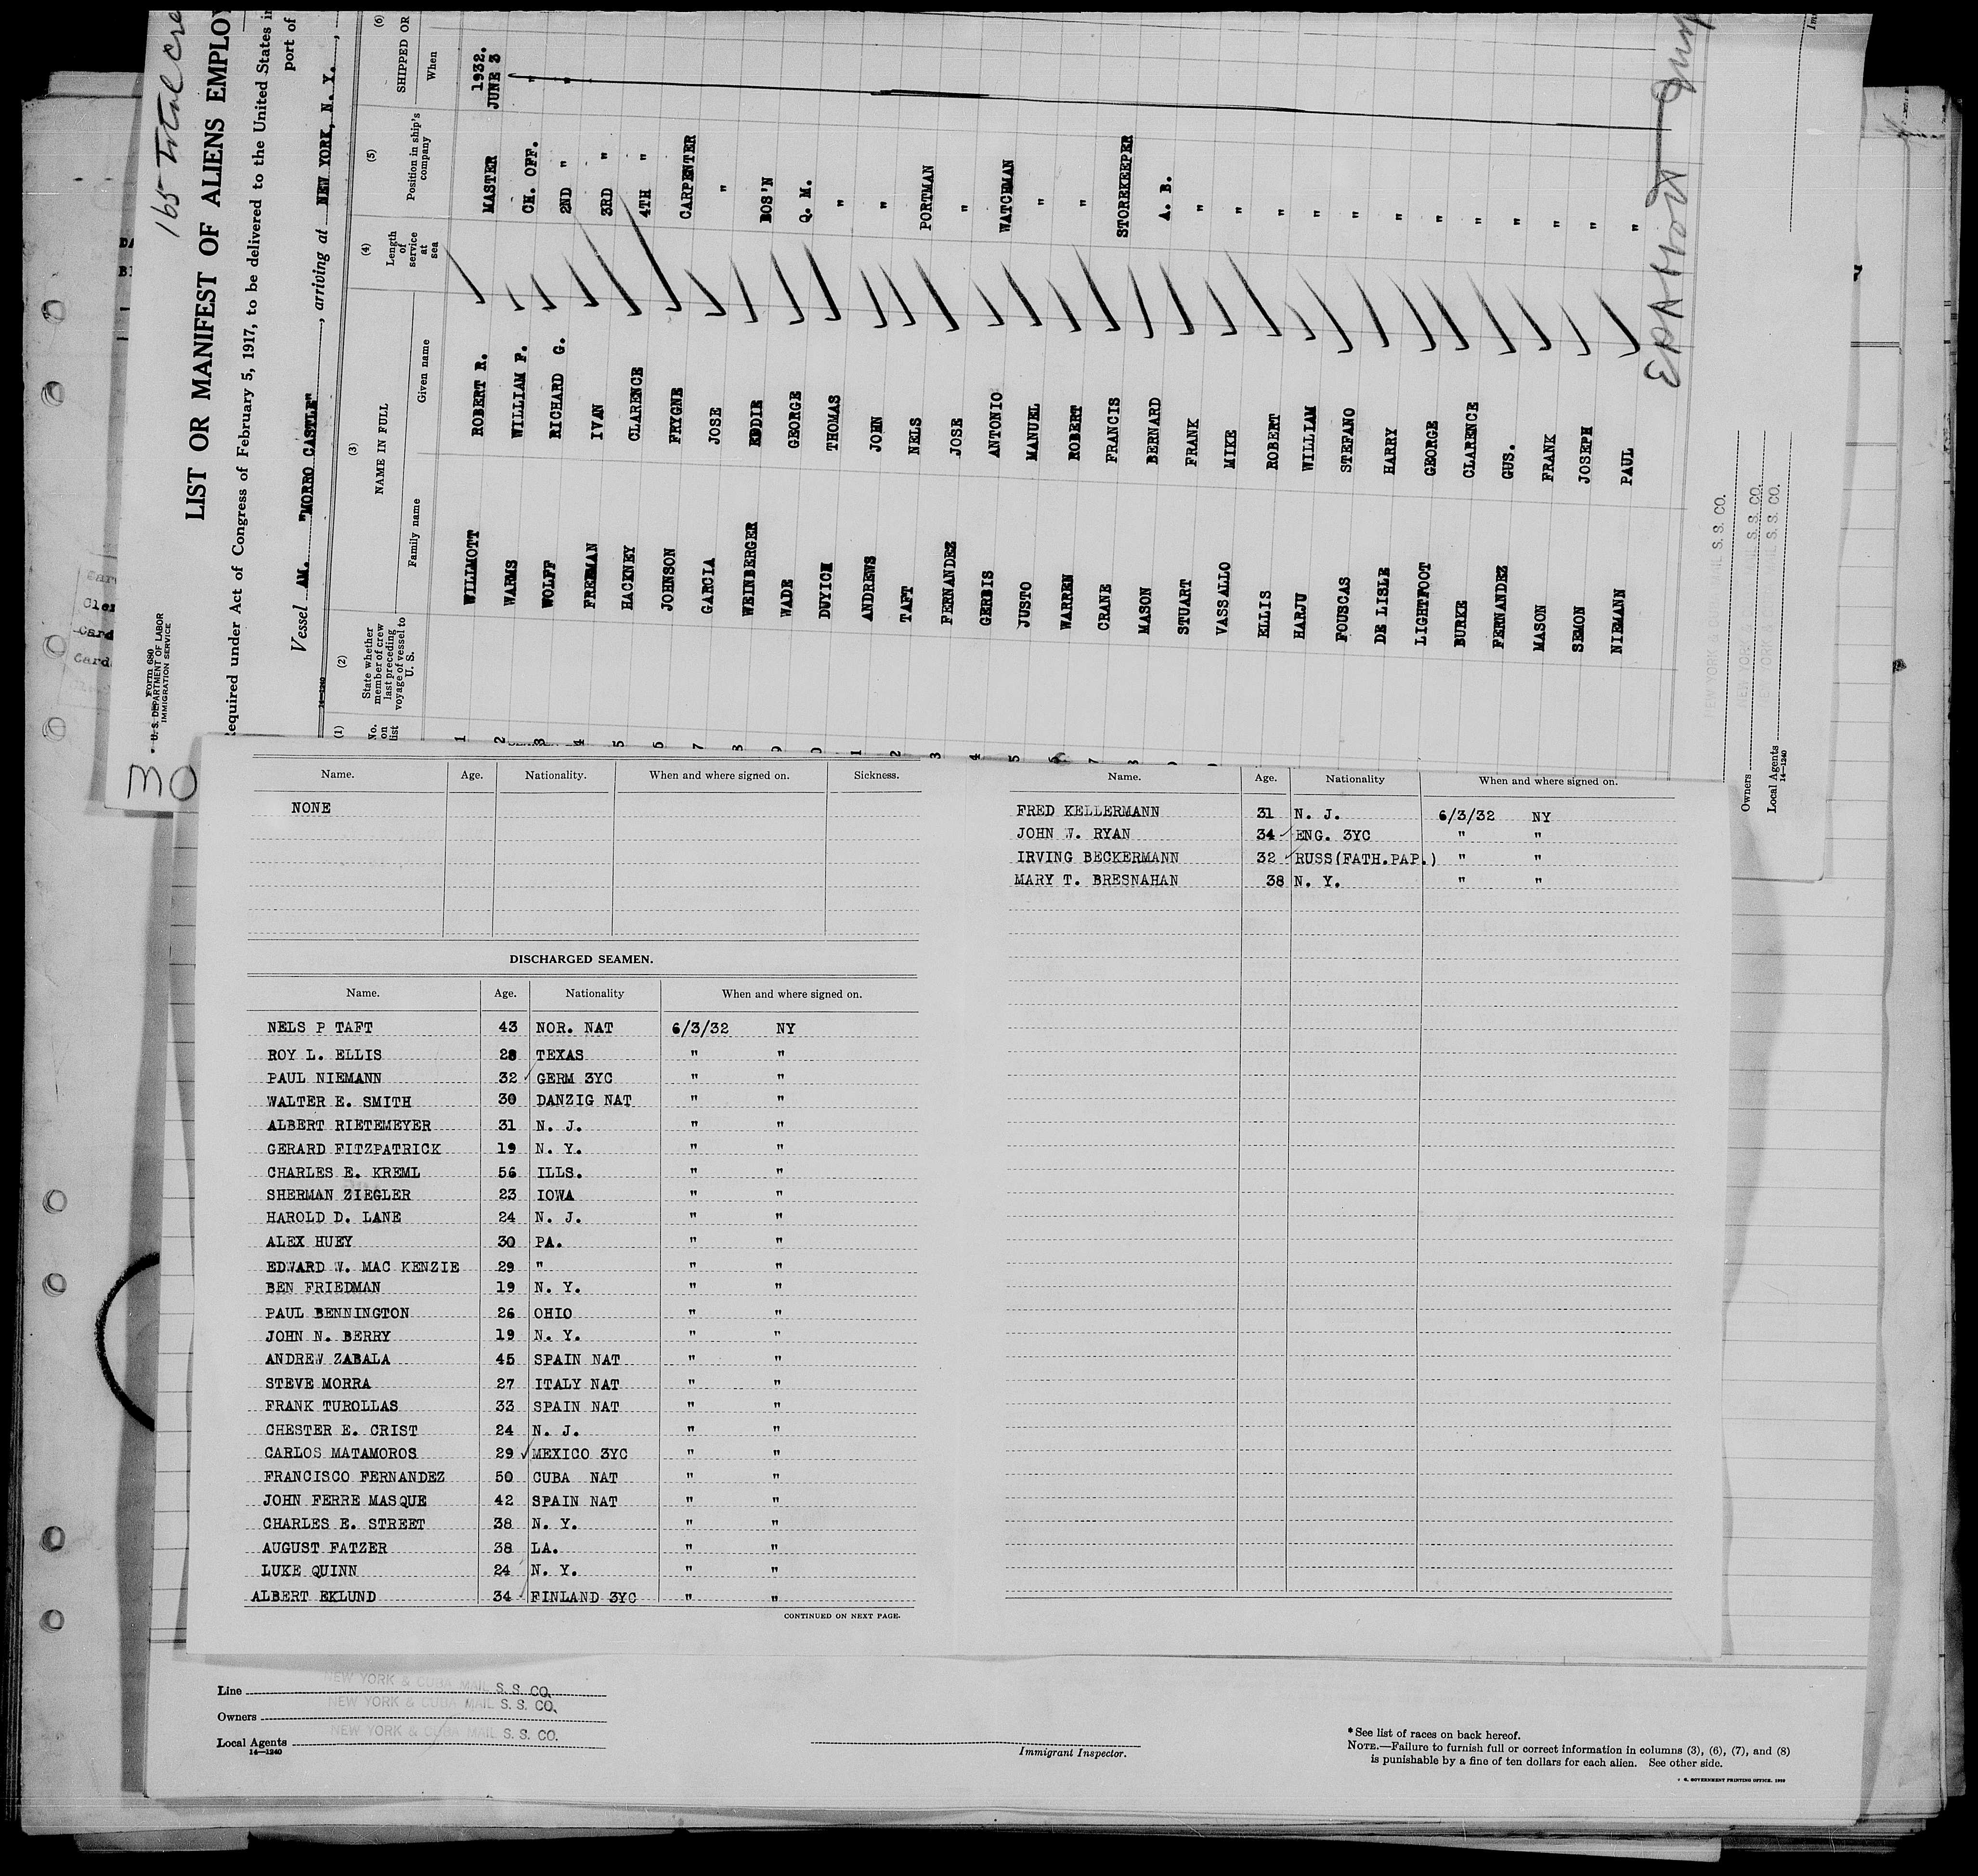 165 Total
LIST OR MANIFEST OF ALIENS EMPLOY
Required under Act of Congress of February 5, 1917, to be delivered to the United States
port of
Form 680
U. S. DEPARTMENT OF LABOR
IMMIGRATION SERVICE
Vessel AM. "MORRO CASTLE", arriving at NEW YORK, N. Y.,
14-1240
(1) (2) (3) (4) (5) (6)
No. on list State whether member of crew last preceding voyage of vessel to U. S. NAME IN FULL Length of service at sea Position in ship's company SHIPPED OR
Family name Given name When
1 WILLMOTT ROBERT R. MASTER 1932. JUNE 3
2 WARMS WILLIAM F. CH. OFF. "
3 WOLFF RICHARD G. 2ND " "
4 FREEMAN IVAN 3RD "
5 HACKNEY CLARENCE 4TH "
6 JOHNSON FRYGNE CARPENTER
7 GARCIA JOSE "
8 WEINBERGER EDDIE BOS'N
9 WADE GEORGE Q. M.
0 DUYICH THOMAS "
1 ANDREWS JOHN "
2 TAFT NELS PORTMAN
3 FERNANDEZ JOSE "
4 GERBIS ANTONIO WATCHMAN
5 JUSTO MANUEL "
6 WARREN ROBERT "
7 CRANE FRANCIS STOREKEEPER
8 MASON BERNARD A. B.
STUART FRANK "
VASSALLO MIKE "
ELLIS ROBERT "
HARJU WILLIAM "
FOUSCAS STEFANO "
DE LISLE HARRY "
LIGHTFOOT GEORGE "
BURKE CLARENCE "
FERNANDEZ GUS. "
MASON FRANK "
SEMON JOSEPH "
NIEMANN PAUL "
NEW YORK & CUBA MAIL S. S. CO.
Owners NEW YORK & CUBA MAIL S. S. CO.
Local Agents NEW YORK & CUBA MAIL S. S. CO.
14-1240
30
Name. Age. Nationality. When and where signed on. Sickness.
NONE
DISCHARGED SEAMEN.
Name. Age. Nationality When and where signed on.
NELS P TAFT 43 NOR. NAT 6/3/32 NY
ROY L. ELLIS 28 TEXAS " "
PAUL NIEMANN 32 GERM 3YC " "
WALTER E. SMITH 30 DANZIG NAT " "
ALBERT RIETEMEYER 31 N. J. " "
GERARD FITZPATRICK 19 N. Y. " "
CHARLES E. KREML 56 ILLS. " "
SHERMAN ZIEGLER 23 IOWA " "
HAROLD D. LANE 24 N. J. " "
ALEX HUEY 30 PA. " "
EDWARD W. MAC KENZIE 29 " " "
BEN FRIEDMAN 19 N. Y. " "
PAUL BENNINGTON 26 OHIO " "
JOHN N. BERRY 19 N. Y. " "
ANDREW ZABALA 45 SPAIN NAT " "
STEVE MORRA 27 ITALY NAT " "
FRANK TUROLLAS 33 SPAIN NAT " "
CHESTER E. CRIST 24 N. J. " "
CARLOS MATAMOROS 29 MEXICO 3YC " "
FRANCISCO FERNANDEZ 50 CUBA NAT " "
JOHN FERRE MASQUE 42 SPAIN NAT " "
CHARLES E. STREET 38 N. Y. " "
AUGUST FATZER 38 LA. " "
LUKE QUINN 24 N. Y. " "
ALBERT EKLUND 34 FINLAND 3YC " "
CONTINUED ON NEXT PAGE.
Name. Age. Nationality When and where signed on.
FRED KELLERMANN 31 N. J. 6/3/32 NY
JOHN W. RYAN 34 ENG. 3YC " "
IRVING BECKERMANN 32 RUSS(FATH.PAP.) " "
MARY T. BRESNAHAN 38 N. Y. " "
Line NEW YORK & CUBA MAIL S. S. CO.
Owners NEW YORK & CUBA MAIL S. S. CO.
Local Agents NEW YORK & CUBA MAIL S. S. CO.
14-1240
Immigrant Inspector.
*See list of races on back hereof.
NOTE.—Failure to furnish full or correct information in columns (3), (6), (7), and (8)
is punishable by a fine of ten dollars for each alien. See other side.
GOVERNMENT PRINTING OFFICE